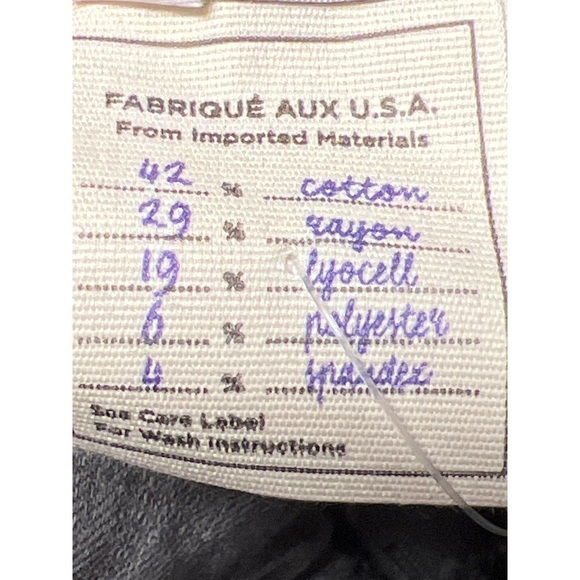 FABRIQUÉ AUX U.S.A.
From Imported Materials
42 % cotton
29 % rayon
19 % lyocell
6 % polyester
4 % spandex
See Care Label
For Wash Instructions